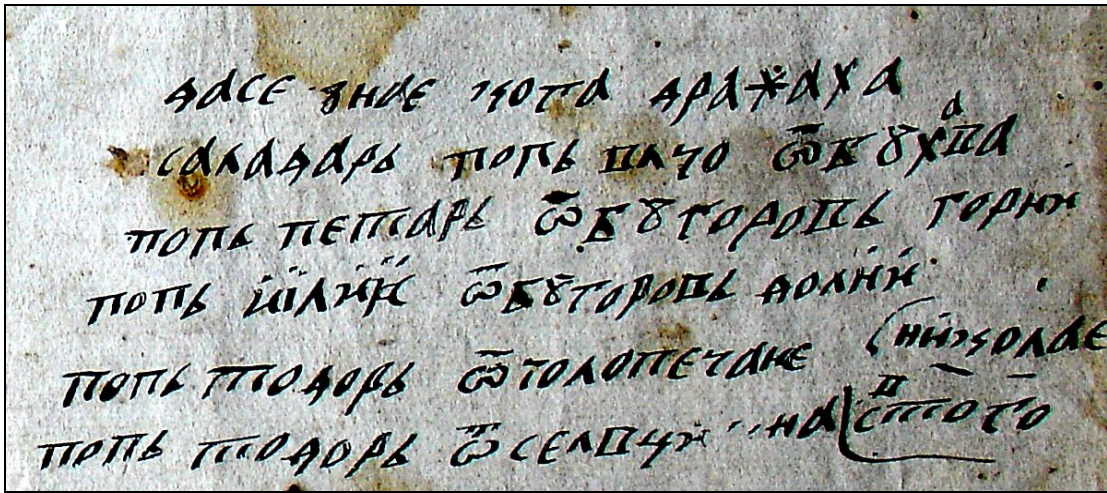 дасе знае кога дражаха
саладарь попь влчо ѿбꙋхаⷶва
попь петарь ѿбꙋгоровь горни
попь илїи ѿбꙋгоровь долни
попь тодорь ѿголопечане (николае
попь тодорь ѿселвци на свⷡтого